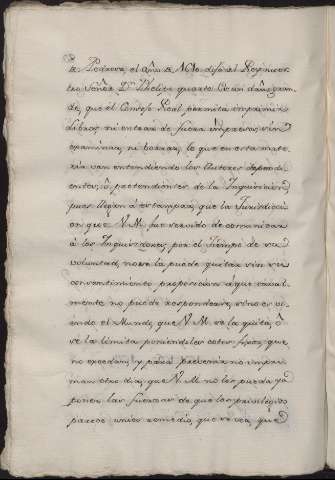 de Pedrosa, el año de 1640 dijo al Rey nuestro
Señor Dn Phelipe quarto
de, que el Consejo Real permita imprimir
libros, ni entrar de fuera impresos, sin
examinar, ni borrar, lo que en esta mate
ria van entendiendo los Autores dependi
entes, ò pretendientes de la Inquisicion,
pues llegan à estampar, que la Jurisdicci
on que V. M. fue servido de comunicar
à los Inquisidores por el tiempo de su
voluntad, no se la puede quitar sin su
consentimiento proposicion à que sola
mente no puede responderse, sino es vi
endo el Mundo, que V. M. se la quita, ò
se la limita poniendoles cotos fixos, que
no excedan, y para prevenir no impri
man otro dia, que V. M. no les pueda
poner las fuerzas de que los privilegios
parece unico remedio, que se vea, que